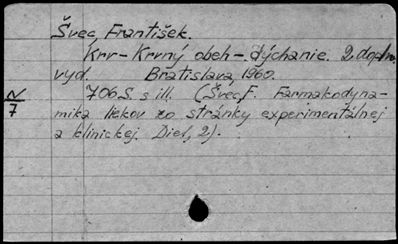 Švec, František.
Krv - Krvný obeh - dýchanie. 2. dopln.
vyd. Bratislava, 1960.
706 S. s ill. (Švec, F. Farmakodyna-
mika liekov zo stránky experimentálnej
a klinickej. Diel, 2).
N/7